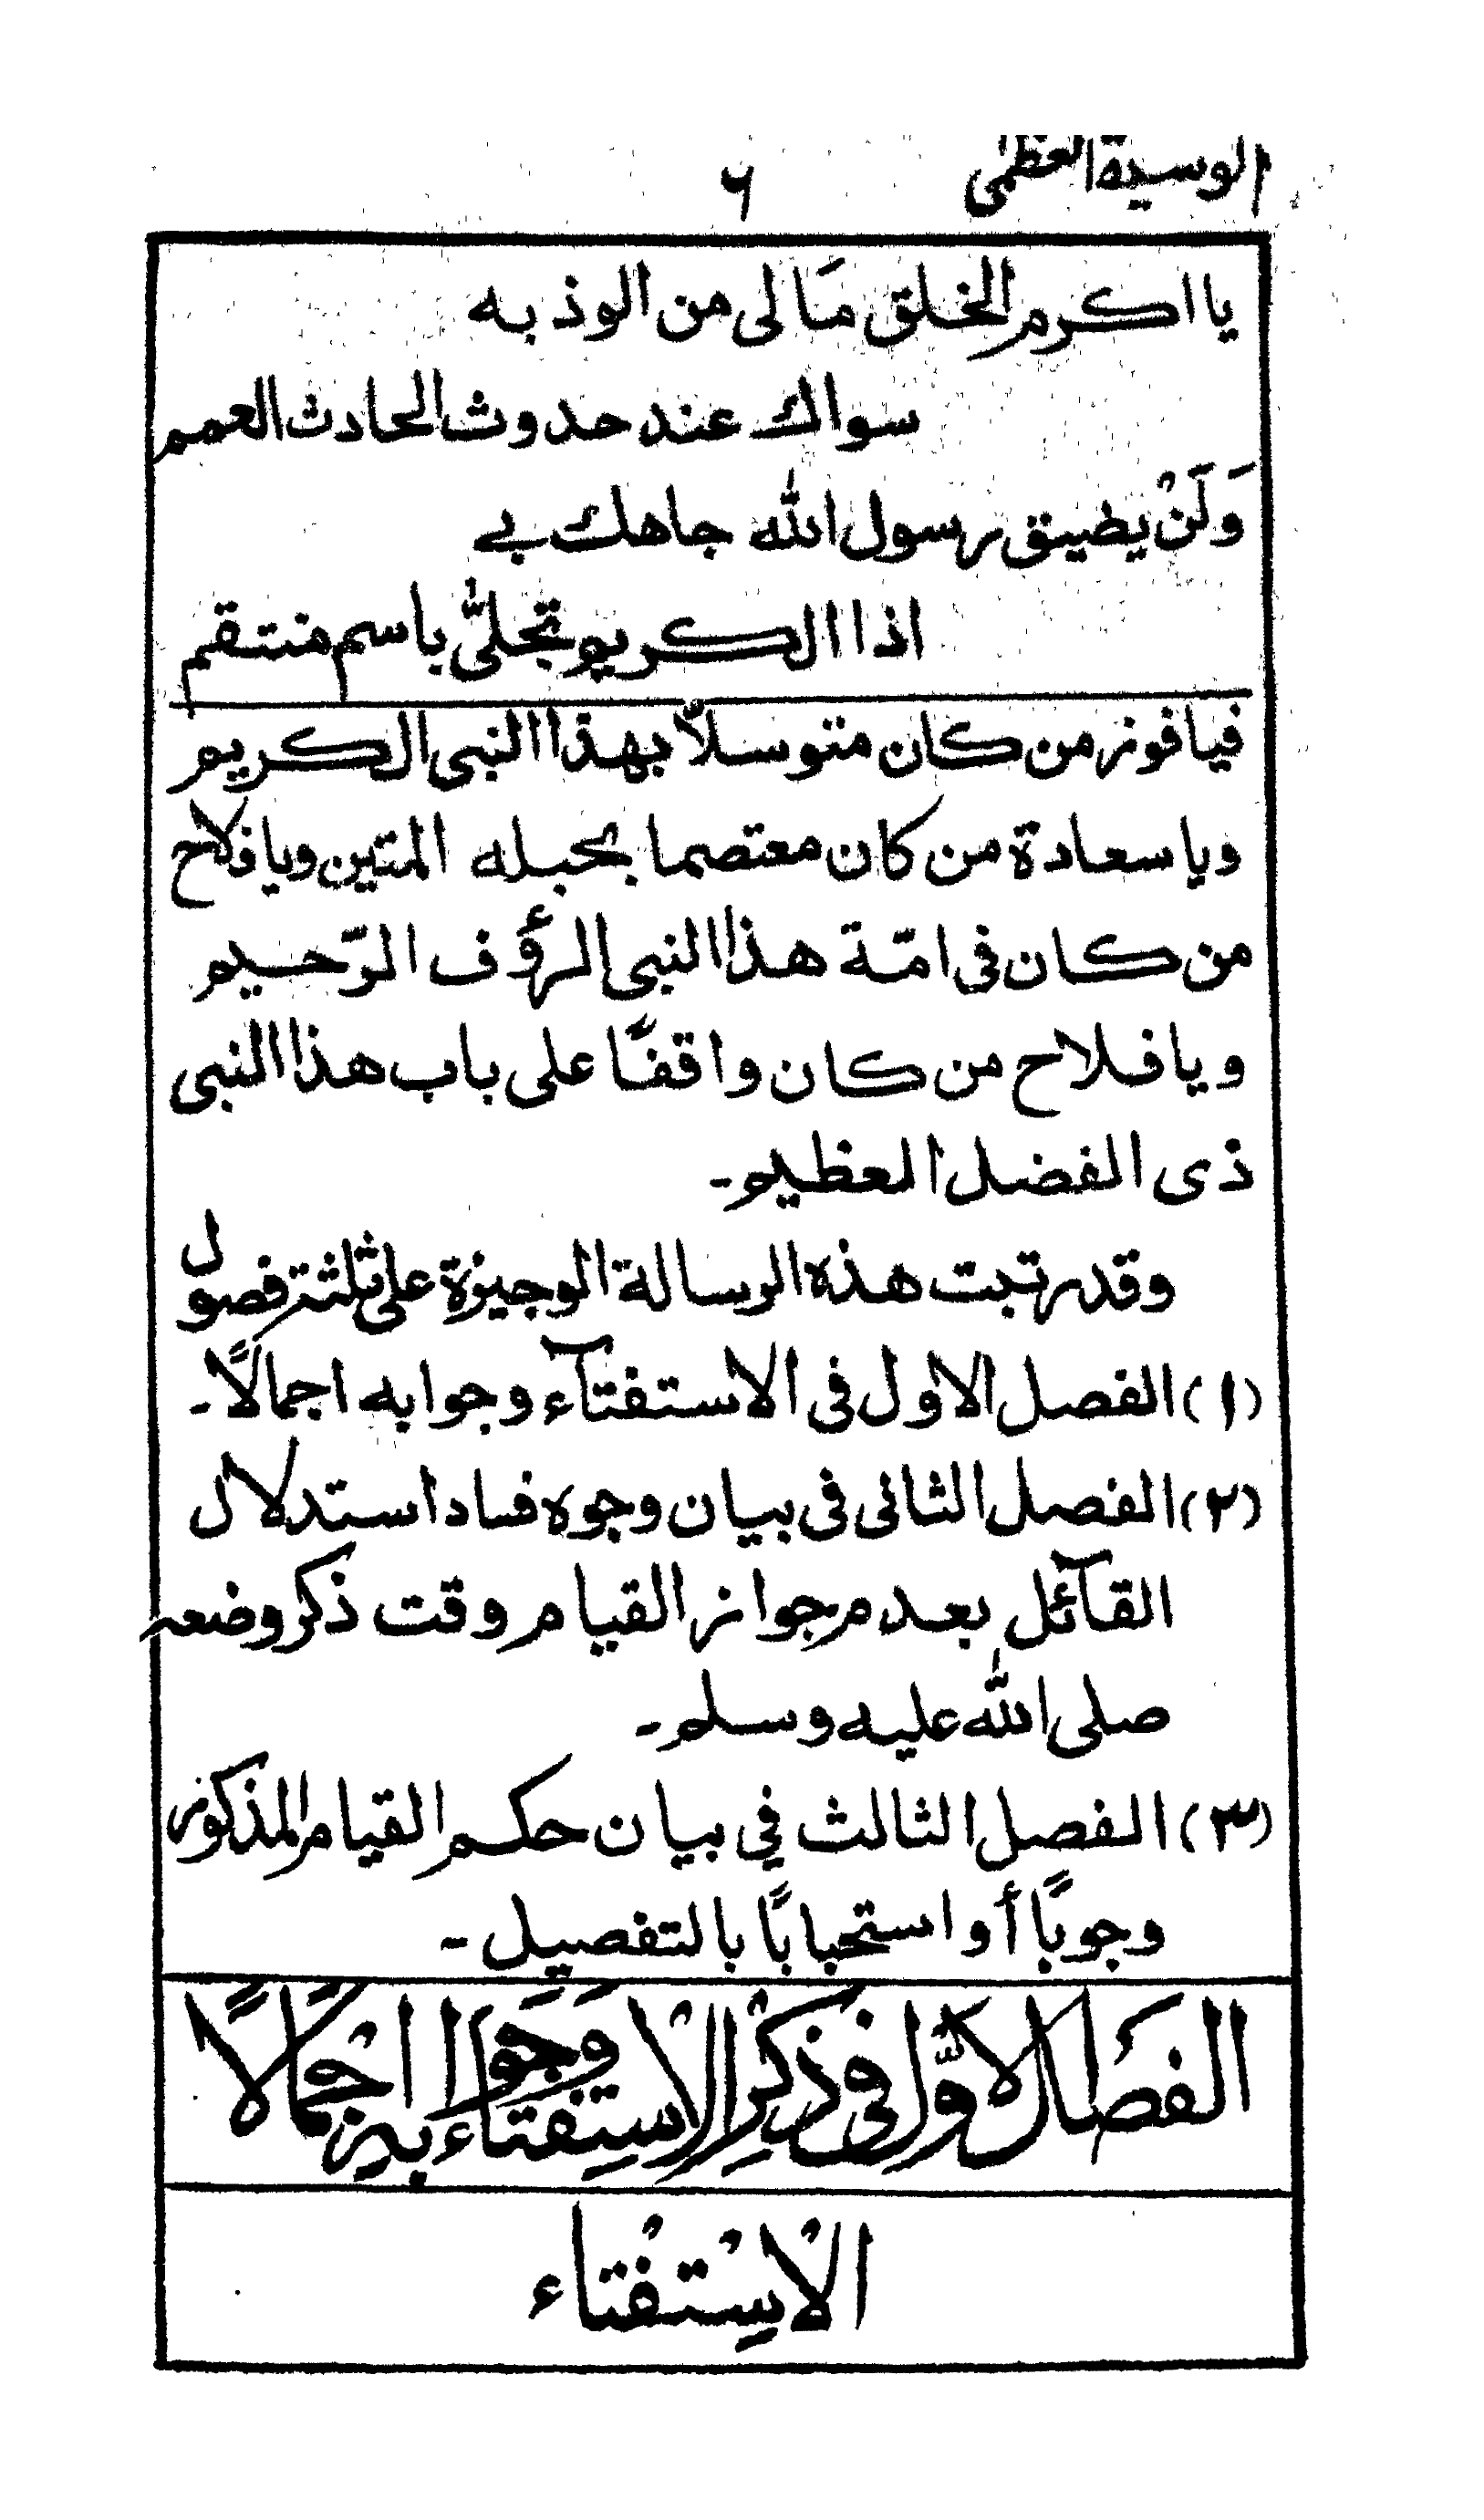 الوسيلة العظمى ٦
يا اكرم الخلق مَا لى من الوذ به
سواك عند حدوث الحادث العمم
وَلَنْ يطيق رسول الله جاهك بى
اذا الكريم تجلّى باسم منتقم
فيا فوز من كان متوسلاً بهذا النبى الكريم
ويا سعادة من كان معتصما بحبله المتين ويا فلاح
من كان فى امّة هذا النبى الرؤف الرّحيم
ويا فلاح من كان واقفًا على باب هذا النبى
ذى الفضل العظيم۔
وقد رتبت هذه الرسالة الوجيزة على ثلثة فصول
(١) الفصل الاول فى الاستفتآء وجوابه اجمالًا۔
(٢) الفصل الثانى فى بيان وجوه فساد استدلال
القآئل بعدم جواز القيام وقت ذكر وضعه
صلى الله عليه وسلم۔
(٣) الفصل الثالث في بيان حكم القيام المذكور
وجوبًا أو استحبابًا بالتفصيل۔
الفصل الاوّل فى ذكر الاستفتاء وجوابه اجمالًا
الاستفتاء